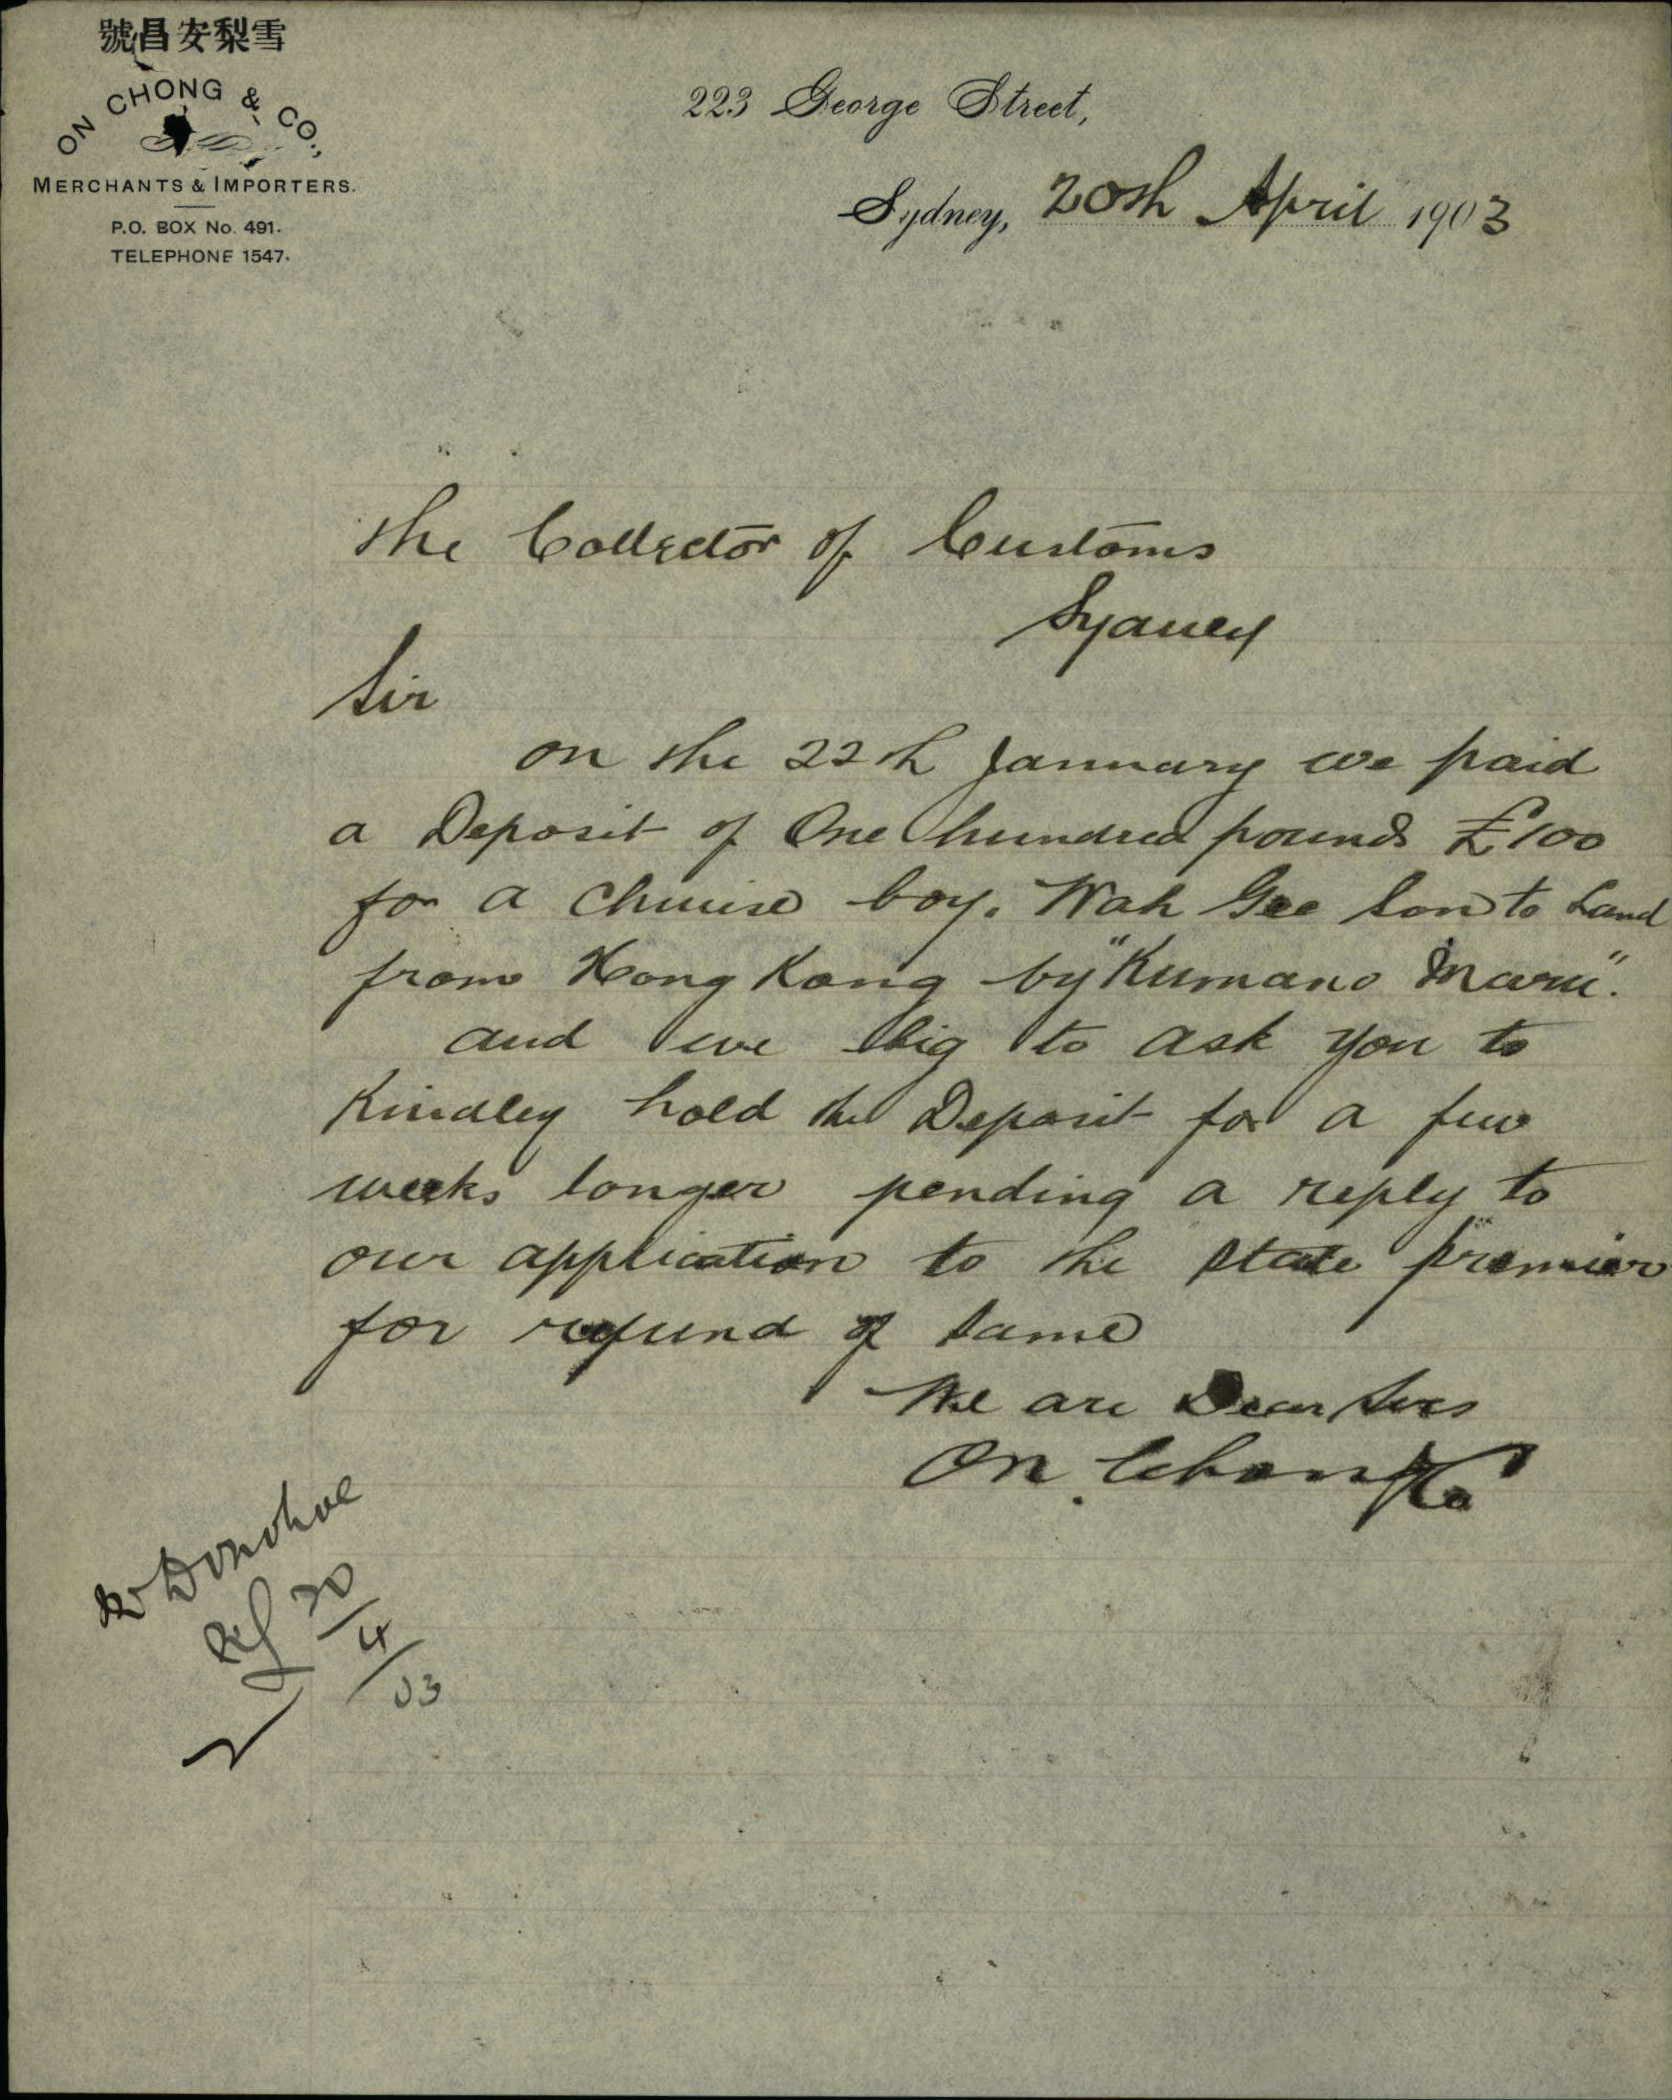 號昌安梨雪
ON CHONG & CO.,
MERCHANTS & IMPORTERS.
P.O. BOX No. 491.
TELEPHONE 1547.
223 George Street,
Sydney, 20th April 1903
The Collector of Customs
Sydney
Sir
on the 22th January we paid
a Deposit of One hundred pounds £100
for a Chinise boy. Wah Gee Son to Land
from Hong Kong by "Kumano Maru".
and we big to ask you to
Kindley hold the Deposit for a few
weeks longer pending a reply to
our application to the state premier
for refund of same
We are Dear Sirs
On Chong & Co
Mr Donohoe
20/4/03